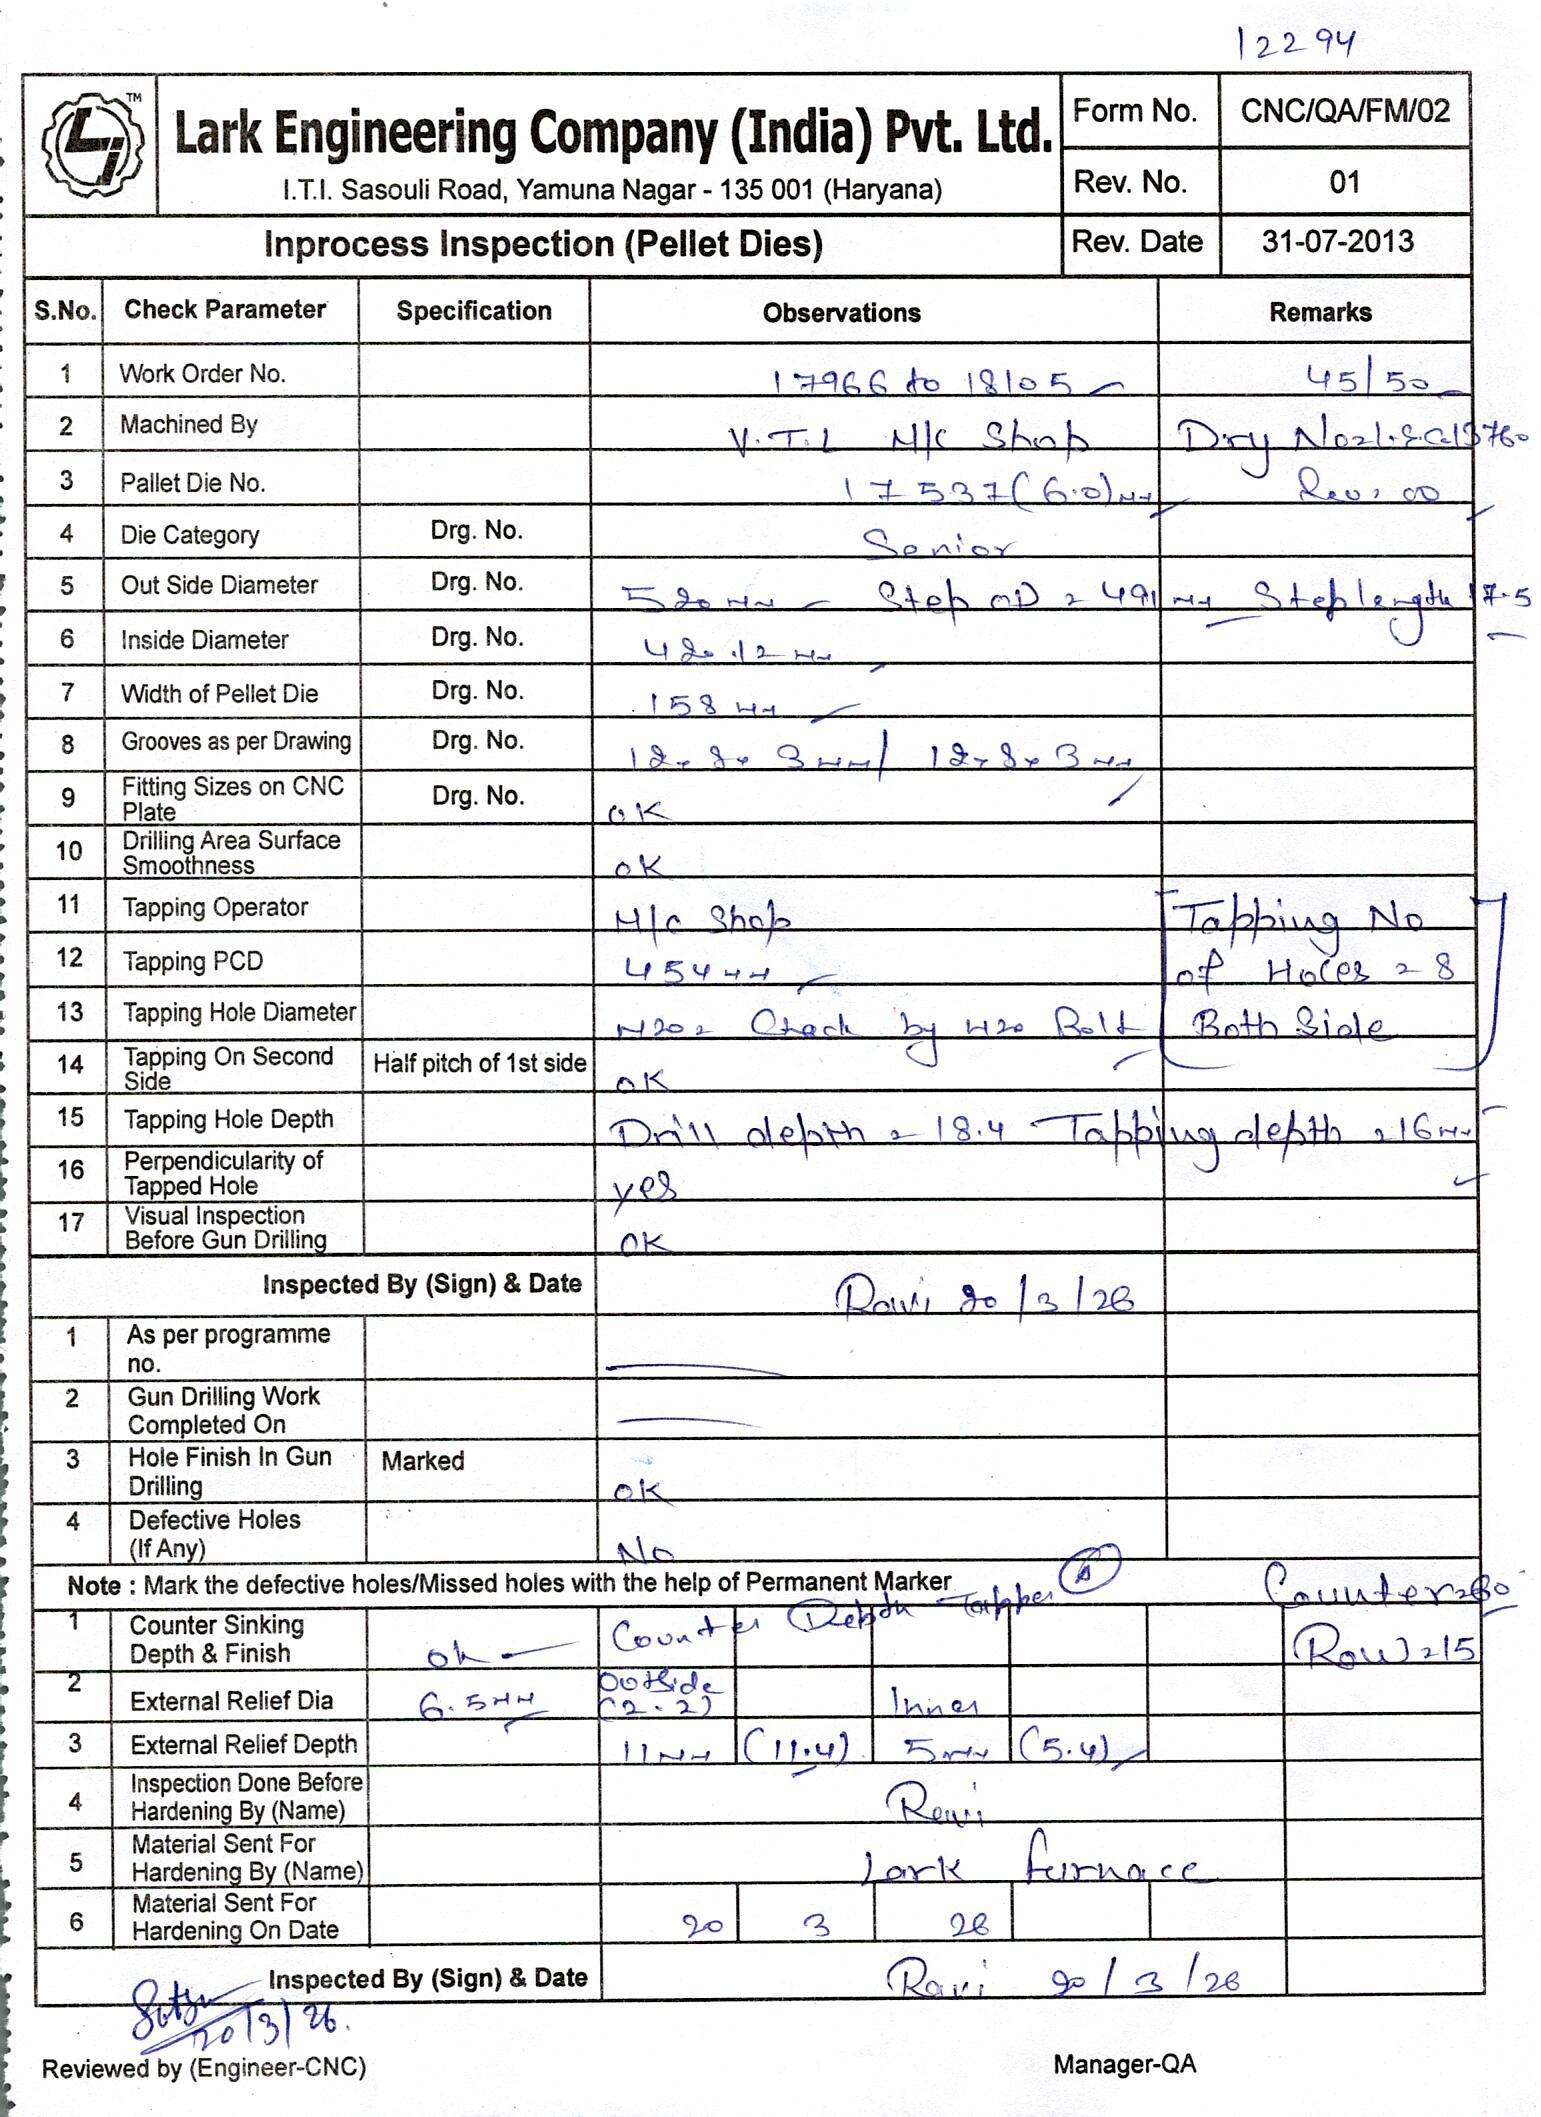 12294
TM
Lark Engineering Company (India) Pvt. Ltd.
I.T.I. Sasouli Road, Yamuna Nagar - 135 001 (Haryana)
Form No. CNC/QA/FM/02
Rev. No. 01
Inprocess Inspection (Pellet Dies) Rev. Date 31-07-2013
S.No. Check Parameter Specification Observations Remarks
1 Work Order No. 17966 to 18105 45/50
2 Machined By V.T.L M/c Shop
3 Pallet Die No. 17537(6.0)mm Rev: 00
4 Die Category Drg. No. Senior
5 Out Side Diameter Drg. No. 520 mm Step OD = 491 mm Step length 17.5
6 Inside Diameter Drg. No. 420.12 mm
7 Width of Pellet Die Drg. No. 158 mm
8 Grooves as per Drawing Drg. No. 12x8x3mm/ 12x8x3mm
9 Fitting Sizes on CNC Plate Drg. No. OK
10 Drilling Area Surface Smoothness OK
11 Tapping Operator M/c Shop Tapping No
12 Tapping PCD 454mm of Holes = 8
13 Tapping Hole Diameter M20 = Check by M20 Bolt Both Side
14 Tapping On Second Side Half pitch of 1st side OK
15 Tapping Hole Depth Drill depth = 18.4 Tapping depth = 16mm
16 Perpendicularity of Tapped Hole yes
17 Visual Inspection Before Gun Drilling OK
Inspected By (Sign) & Date Ravi 20/3/26
1 As per programme no.
2 Gun Drilling Work Completed On
3 Hole Finish In Gun Drilling Marked OK
4 Defective Holes (If Any) No
Note : Mark the defective holes/Missed holes with the help of Permanent Marker
1 Counter Sinking Depth & Finish ok Counter Depth Tapper Counter=60
Row=15
2 External Relief Dia 6.5mm Outside (2.2) Inner
3 External Relief Depth 11mm (11.4) 5mm (5.4)
4 Inspection Done Before Hardening By (Name) Ravi
5 Material Sent For Hardening By (Name) Lark furnace
6 Material Sent For Hardening On Date 20 3 26
Inspected By (Sign) & Date Ravi 20/3/26
20/3/26.
Reviewed by (Engineer-CNC) Manager-QA